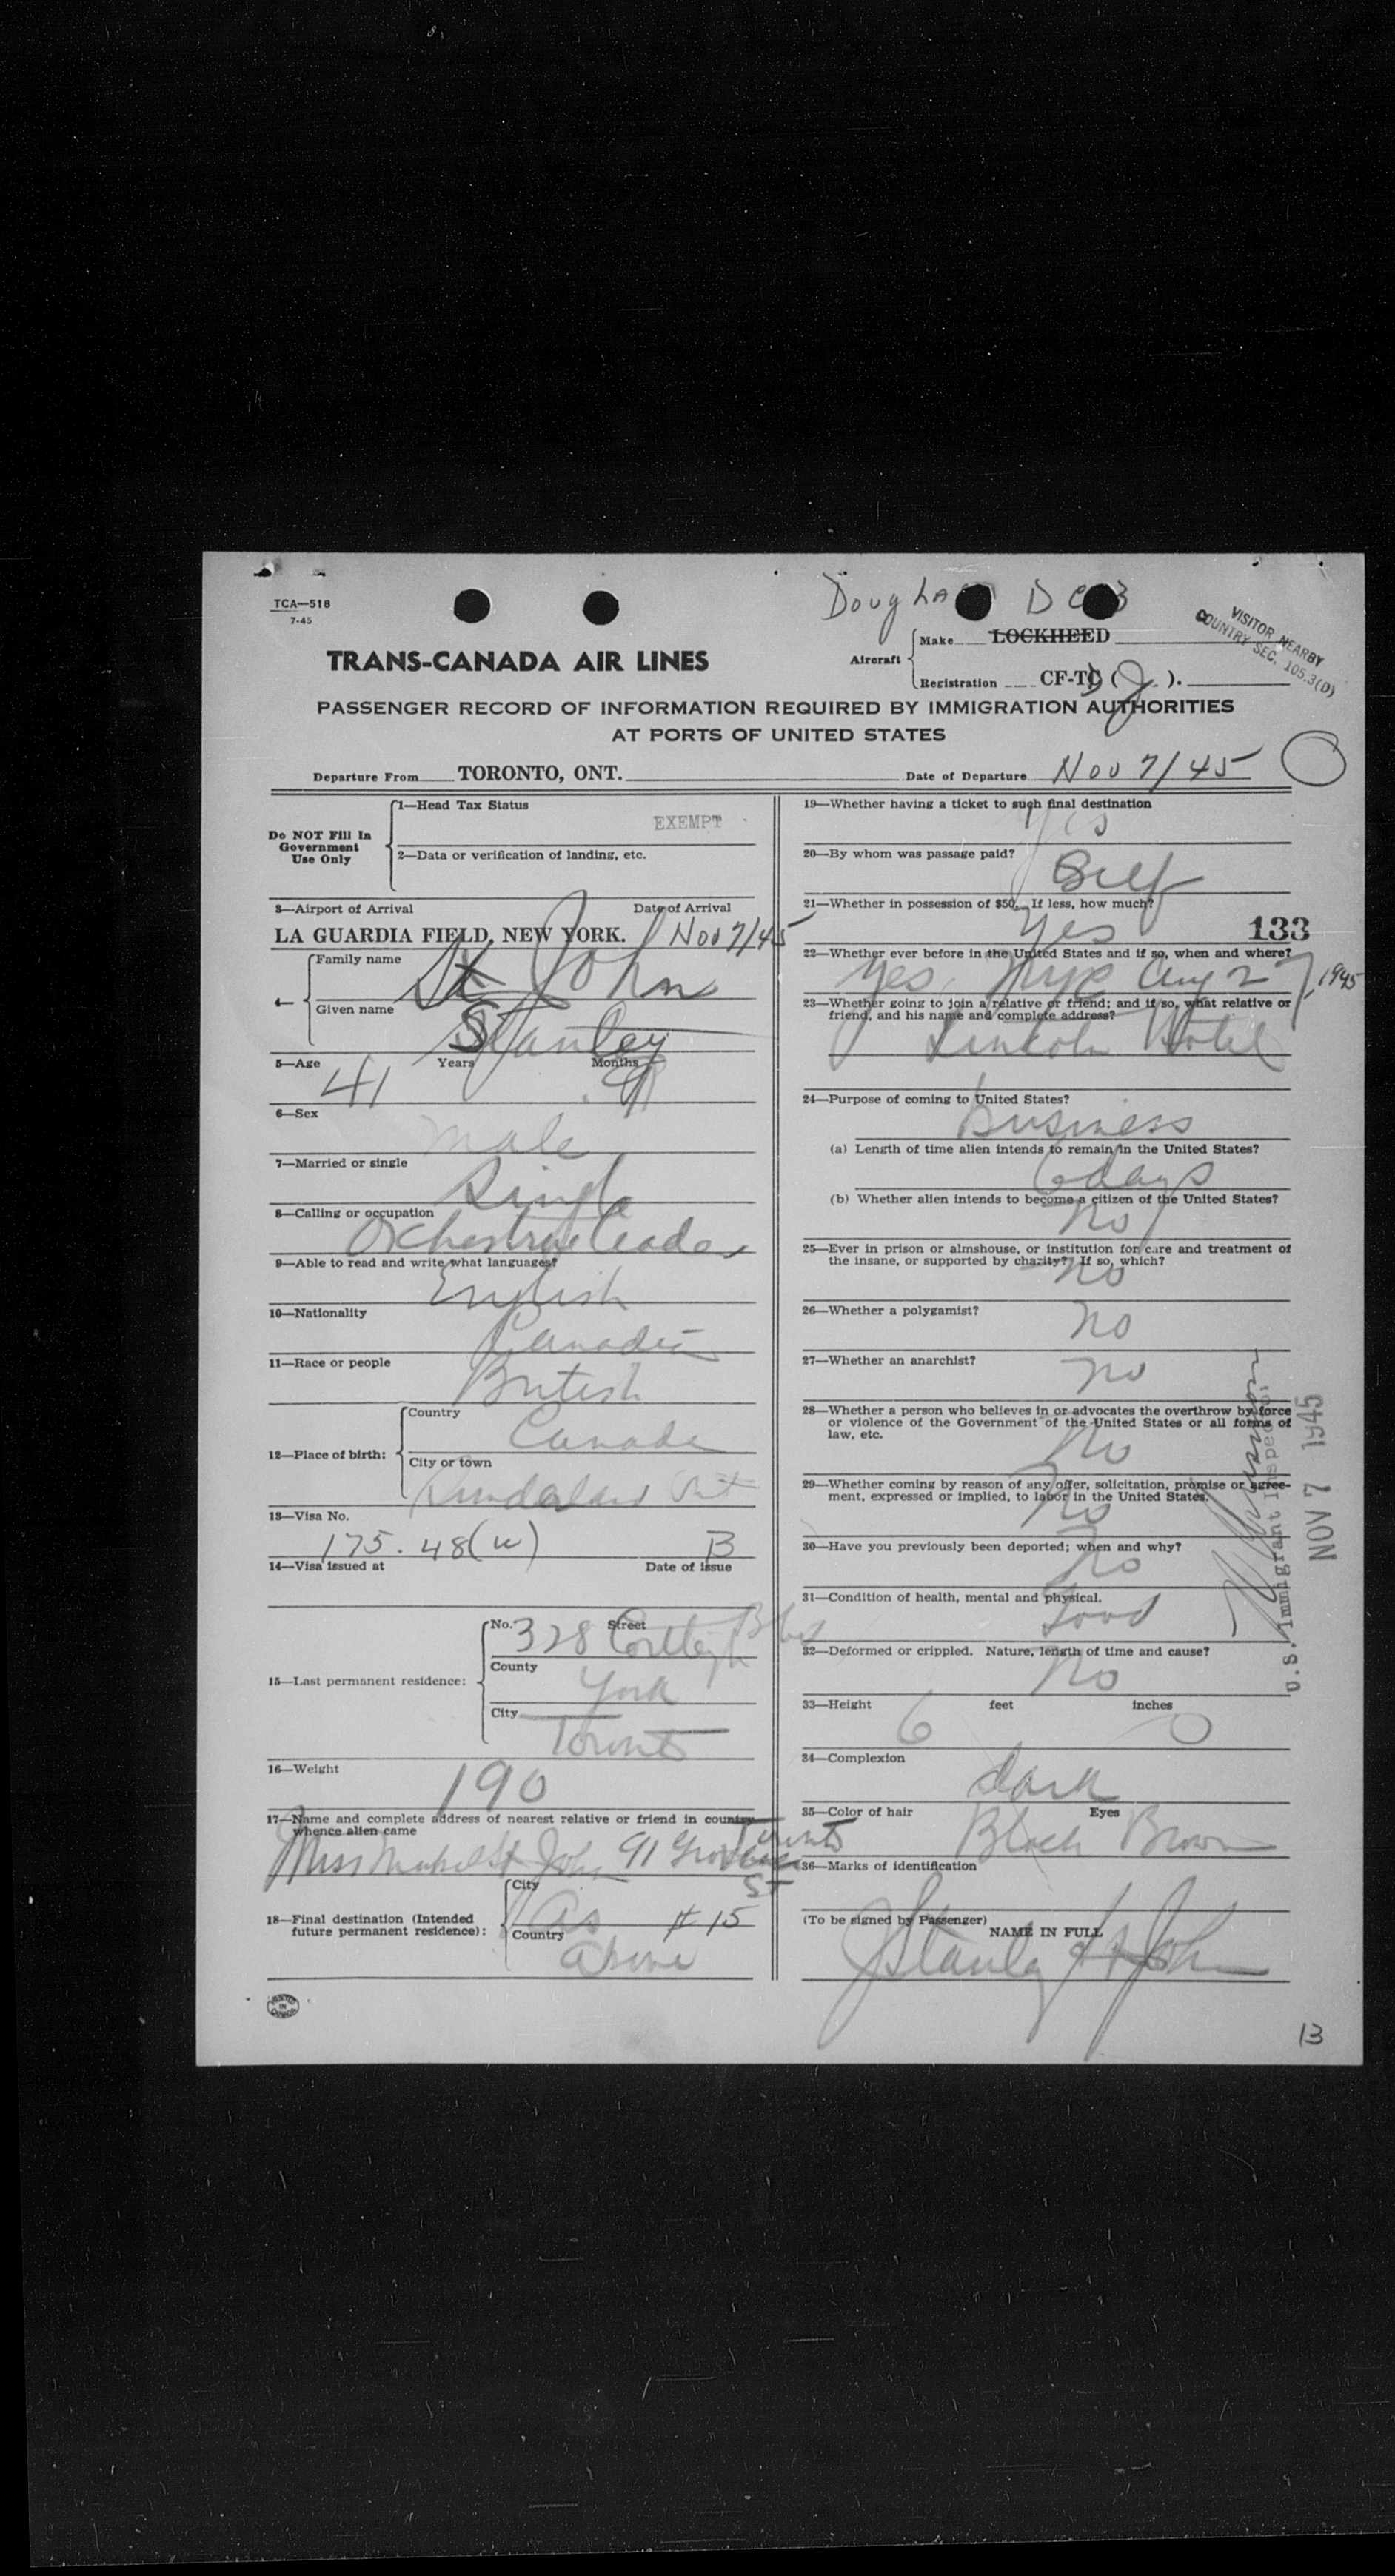 TCA—518
7-45
Douglas DC3
VISITOR NEARBY
COUNTRY SEC. 105.3(D)
TRANS-CANADA AIR LINES
Aircraft
Make LOCKHEED
Registration CF-TC ( J ).
PASSENGER RECORD OF INFORMATION REQUIRED BY IMMIGRATION AUTHORITIES
AT PORTS OF UNITED STATES
Departure From TORONTO, ONT. Date of Departure Nov 7/45
Do NOT Fill In
Government
Use Only
1—Head Tax Status
EXEMPT
2—Data or verification of landing, etc.
3—Airport of Arrival Date of Arrival
LA GUARDIA FIELD, NEW YORK. Nov 7/45
4—
Family name
St John
Given name
Stanley
5—Age Years Months
41
6—Sex
Male
7—Married or single
Single
8—Calling or occupation
Orchestra Leader
9—Able to read and write what languages?
English
10—Nationality
Canadian
11—Race or people
British
12—Place of birth:
Country
Canada
City or town
Sunderland Ont
13—Visa No.
175.48(w) B
14—Visa issued at Date of issue
15—Last permanent residence:
No. Street
328 Cortleigh Blvd
County
York
City
Toronto
16—Weight
190
17—Name and complete address of nearest relative or friend in country
whence alien came
Toronto
Miss St John 91
St
18—Final destination (Intended
future permanent residence):
City
As # 15
Country
above
19—Whether having a ticket to such final destination
Yes
20—By whom was passage paid?
Self
21—Whether in possession of $50. If less, how much?
Yes
133
22—Whether ever before in the United States and if so, when and where?
Yes, NYC Aug 27, 1945
23—Whether going to join a relative or friend; and if so, what relative or
friend, and his name and complete address?
Lincoln Hotel
24—Purpose of coming to United States?
Business
(a) Length of time alien intends to remain in the United States?
6 days
(b) Whether alien intends to become a citizen of the United States?
no
25—Ever in prison or almshouse, or institution for care and treatment of
the insane, or supported by charity? If so, which?
no
26—Whether a polygamist?
no
27—Whether an anarchist?
no
28—Whether a person who believes in or advocates the overthrow by force
or violence of the Government of the United States or all forms of
law, etc.
No
29—Whether coming by reason of any offer, solicitation, promise or agree-
ment, expressed or implied, to labor in the United States.
No
30—Have you previously been deported; when and why?
No
31—Condition of health, mental and physical.
Good
32—Deformed or crippled. Nature, length of time and cause?
No
33—Height feet inches
6 0
34—Complexion
dark
35—Color of hair Eyes
Black Brown
36—Marks of identification
(To be signed by Passenger)
NAME IN FULL
J Stanley St John
U.S. Immigrant Inspector
NOV 7 1945
PRINTED
IN
CANADA
13